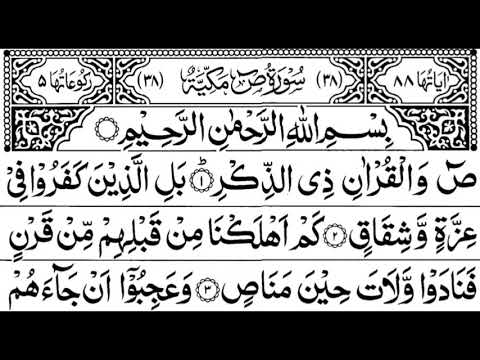 اٰيَاتُهَا ٨٨ (٣٨) سُوْرَةُ صٓ مَكِّيَّةٌ (٣٨) رُكُوْعَاتُهَا ٥
بِسْمِ اللّٰهِ الرَّحْمٰنِ الرَّحِيْمِ
صٓ وَالْقُرْاٰنِ ذِى الذِّكْرِ ؕ‏﴿١﴾ بَلِ الَّذِيْنَ كَفَرُوْا فِىْ
عِزَّةٍ وَّشِقَاقٍ ﴿٢﴾ كَمْ اَهْلَكْنَا مِنْ قَبْلِهِمْ مِّنْ قَرْنٍ
فَنَادَوْا وَّلَاتَ حِيْنَ مَنَاصٍ ﴿٣﴾ وَعَجِبُوْۤا اَنْ جَآءَهُمْ